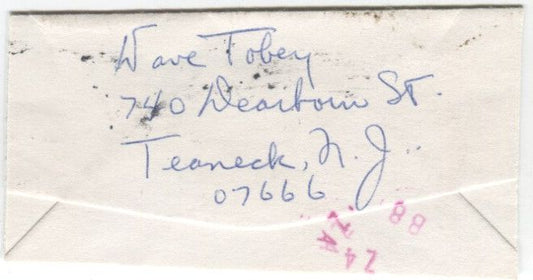 Dave Tobey
740 Dearborn St.
Teaneck, N.J.
07666